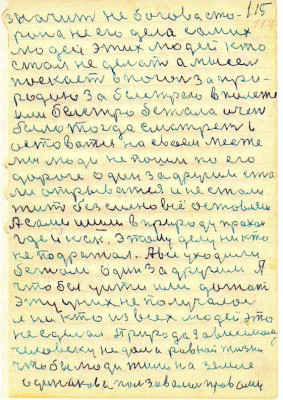 115
117
значит не бого васто-
рона не его дела самих
людей этих людей кто
стал не делат а мысел
поехат в погон за при-
родию За быстрого в полете
или быстро бежала и чем
было тогда смотрет и
оставатя на своем месте
мы люди не пошли по его
дороге один за другим ста
ли отрыватся и не стали
жит без слов но всё оставили
А сами шли в природу прахом
где и как. Этому делу ни кто
не подражал. А все уходили
бежали один за другим. А
что бы уйти или догнат
эту у них не получалос
и ни кто из всех людей это
не сделал Природа зависимому
человеку не дала равной жизни
чтобы люди жили на земле
одинакова ползовалис правами